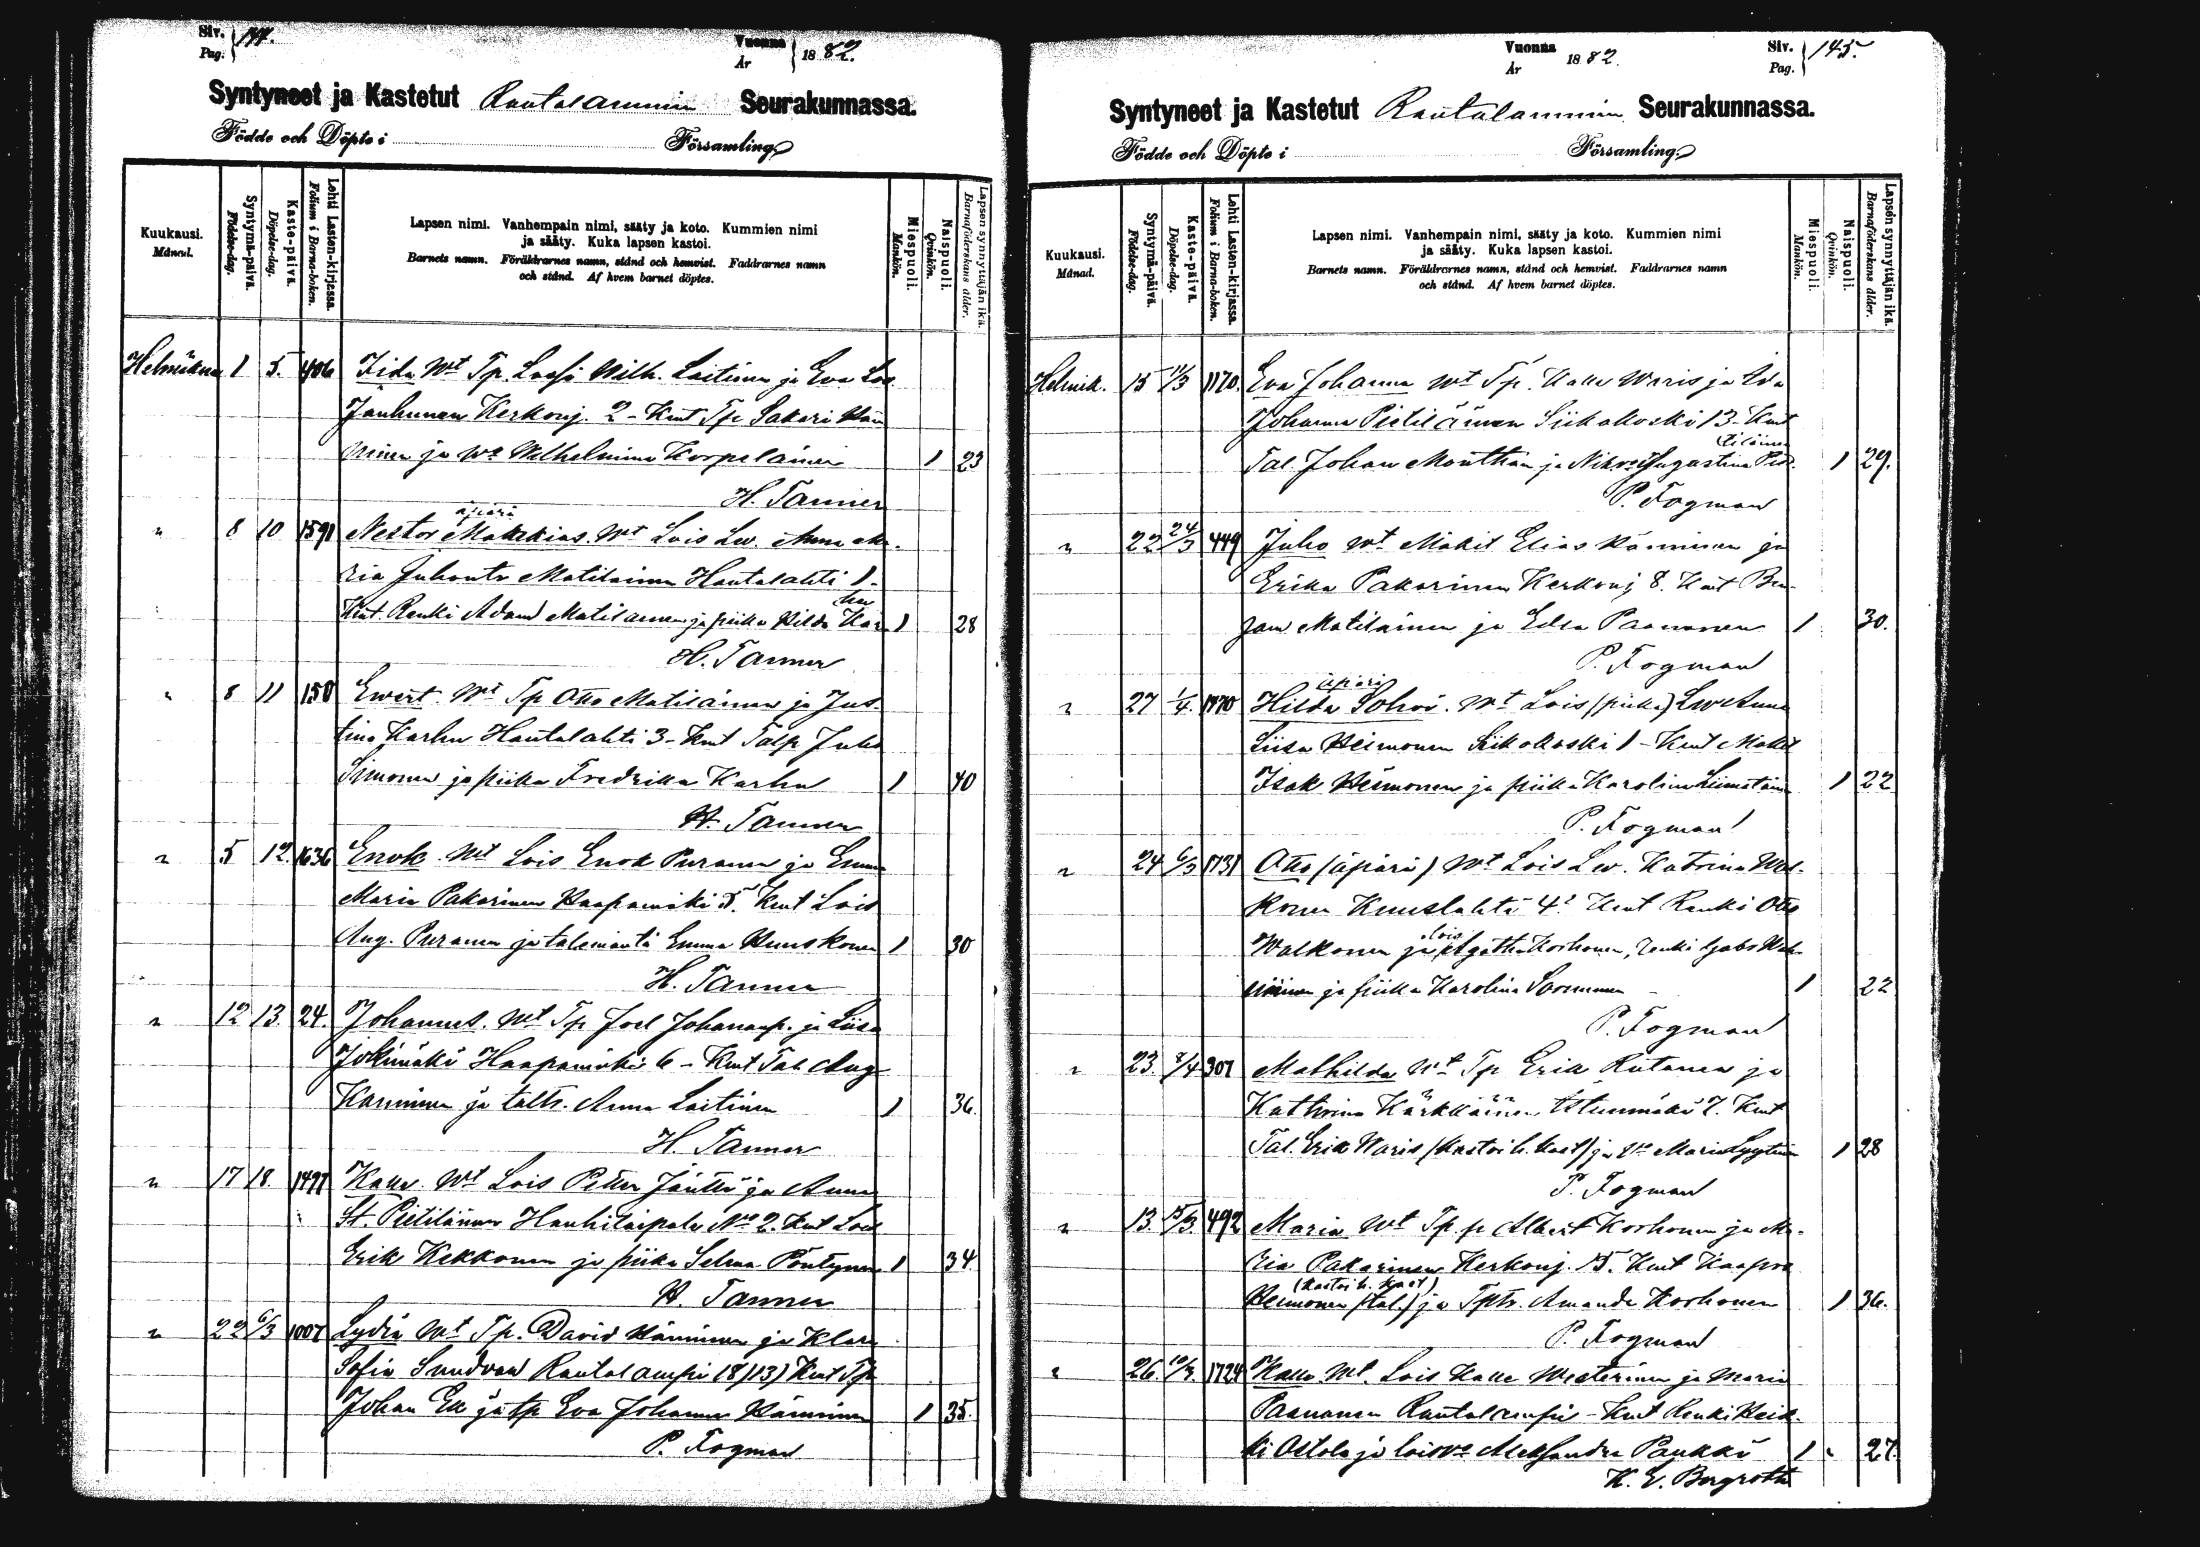 Siv.
Pag. 144.
Vuonna
År 1882.
Syntyneet ja Kastetut Rautalammin Seurakunnassa.
Födde och Döpte i Församling
Kuukausi.
Månad.
Syntymä-päivä.
Födelse-dag.
Kaste-päivä.
Döpelse-dag.
Lehti Lasten-kirjassa.
Folium i Barna-boken.
Lapsen nimi. Vanhempain nimi, sääty ja koto. Kummien nimi
ja sääty. Kuka lapsen kastoi.
Barnets namn. Föräldrarnes namn, stånd och hemvist. Faddrarnes namn
och stånd. Af hvem barnet döptes.
Miespuoli.
Mankön.
Naispuoli.
Qvinkön.
Lapsen synnyttäjän ikä.
Barnaföderskans ålder.
1 5. 406 Iida Wt Tp. Wilh. Laitinen ja Eva
Janhunen Kerkonj. 2 - Kmt Tp Sakari Hän
ninen ja Wo Wilhelmina Korpelainen 1 23
H. Tanner
äpärä
" 8 10 1591 Nestor Makkias. Wt Lois Lw. Anna Ma-
ria Juhontr Matilainen Hautalahti 1.
Kmt. Renki Adam Matilainen ja piika Hilda Kar
hu 1 28
H. Tanner
" 8 11 150 Ewert. Wt Tp Otto Matilainen ja Jus
tina Karhu Hautalahti 3 - Kmt Talp Juho
Simonen ja piika Fredrika Karhu 1 40
H. Tanner
" 5 12. 1636 Enok Wt Lois Enok Puranen ja Emma
Maria Pakarinen Haapamäki 5. Kmt Lois
Aug. Puranen ja talemäntä Emma Huuskonen 1 30
H. Tanner
" 12 13. 24. Johannes. Wt Tp Joel Johananp. ja Liisa
Jokimäki Haapamäki 6 - Kmt Tal. Aug
Karininen ja taltr. Anna Laitinen 1 36.
H. Tanner
" 17 18. 1497 Kalle. Wt Lois Petter Jäntti ja Anna
St. Pietiläinen Hanhitaipale No 2. Kmt Lois
Erik Kekkonen ja piika Selma Pöntynen 1 34
H. Tanner
" 22 6/3 1007 Lydia Wt Tp. David Hänninen ja Klara
Sofia Sundvad Rautalampi 18/13) Kmt Tp
Johan Ek ja tp Eva Johanna Hänninen 1 35.
P. Fogman
Vuonna
År 1882.
Siv.
Pag. 145.
Syntyneet ja Kastetut Rautalammin Seurakunnassa.
Födde och Döpte i Församling
Kuukausi.
Månad.
Syntymä-päivä.
Födelse-dag.
Kaste-päivä.
Döpelse-dag.
Lehti Lasten-kirjassa.
Folium i Barna-boken.
Lapsen nimi. Vanhempain nimi, sääty ja koto. Kummien nimi
ja sääty. Kuka lapsen kastoi.
Barnets namn. Föräldrarnes namn, stånd och hemvist. Faddrarnes namn
och stånd. Af hvem barnet döptes.
Miespuoli.
Mankön.
Naispuoli.
Qvinkön.
Lapsen synnyttäjän ikä.
Barnaföderskans ålder.
Helmik. 15 11/3 1170. Eva Johanna Wt Tp. Kalle Waris ja Eda
Johanna Pietiläinen Siikakoski 13 - Kmt
Tal. Johan Monthan ja Augustina Piet
tiläinen 1 29.
P. Fogman
" 22 24/3 449 Juho Wt Mäkit Elias Hänninen ja
Erika Pakarinen Kerkonj 8. Kmt Ben
jam Matilainen ja Edla Paananen 1 30.
P. Fogman
äpärä
" 27 1/4. 1770 Hilda Sohvi. Wt Lois (piika) Lw Anna
Liisa Heimonen Siikakoski 1 - Kmt Mäkit
Isak Heimonen ja piika Karolina Liimatain 1 22
P. Fogman
" 24 6/3 1731 Otto (äpärä) Wt Lois Lw. Katrina Wal-
konen Kuuslahti 4. Kmt Renki Otto
Walkonen ja lois Agatha Korhonen, renki Gabr
ja piika Karolina 1 22
P. Fogman
" 23. 8/4 307 Mathilda Wt Tp Erik Rutanen ja
Kathrina Kärkkäinen Istunmäki 7. Kmt
Tal. Erik Waris (kastoi h. kast) ja Maria Lyytinen 1 28
P. Fogman
" 13. 15/3. 492 Maria Wt Tp.p Albert Korhonen ja Ma-
ria Pakarinen Kerkonj. 15. Kmt Kaapro
(kastoi h. kast)
Heimonen (tal.) ja Tptr. Amanda Korhonen 1 36.
P. Fogman
" 26. 10/3. 1724 Kalle Wt. Lois Kalle Westerinen ja Maria
Paananen Rautalampi - Kmt Renki Heik-
ki Ostola ja loisvo Aleksandra Paukki 1 27.
K. E. Bergroth